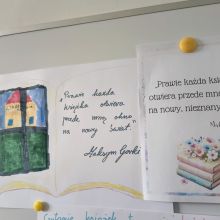 „Prawie każda
książka otwiera
przede mną okno
na nowy świat."
Maksym Gorki
„Prawie każda ksi
otwiera przede mn
na nowy, nieznany